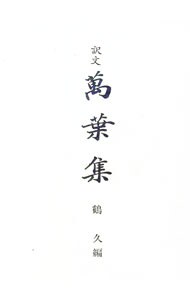 訳文
萬葉集
鶴久編